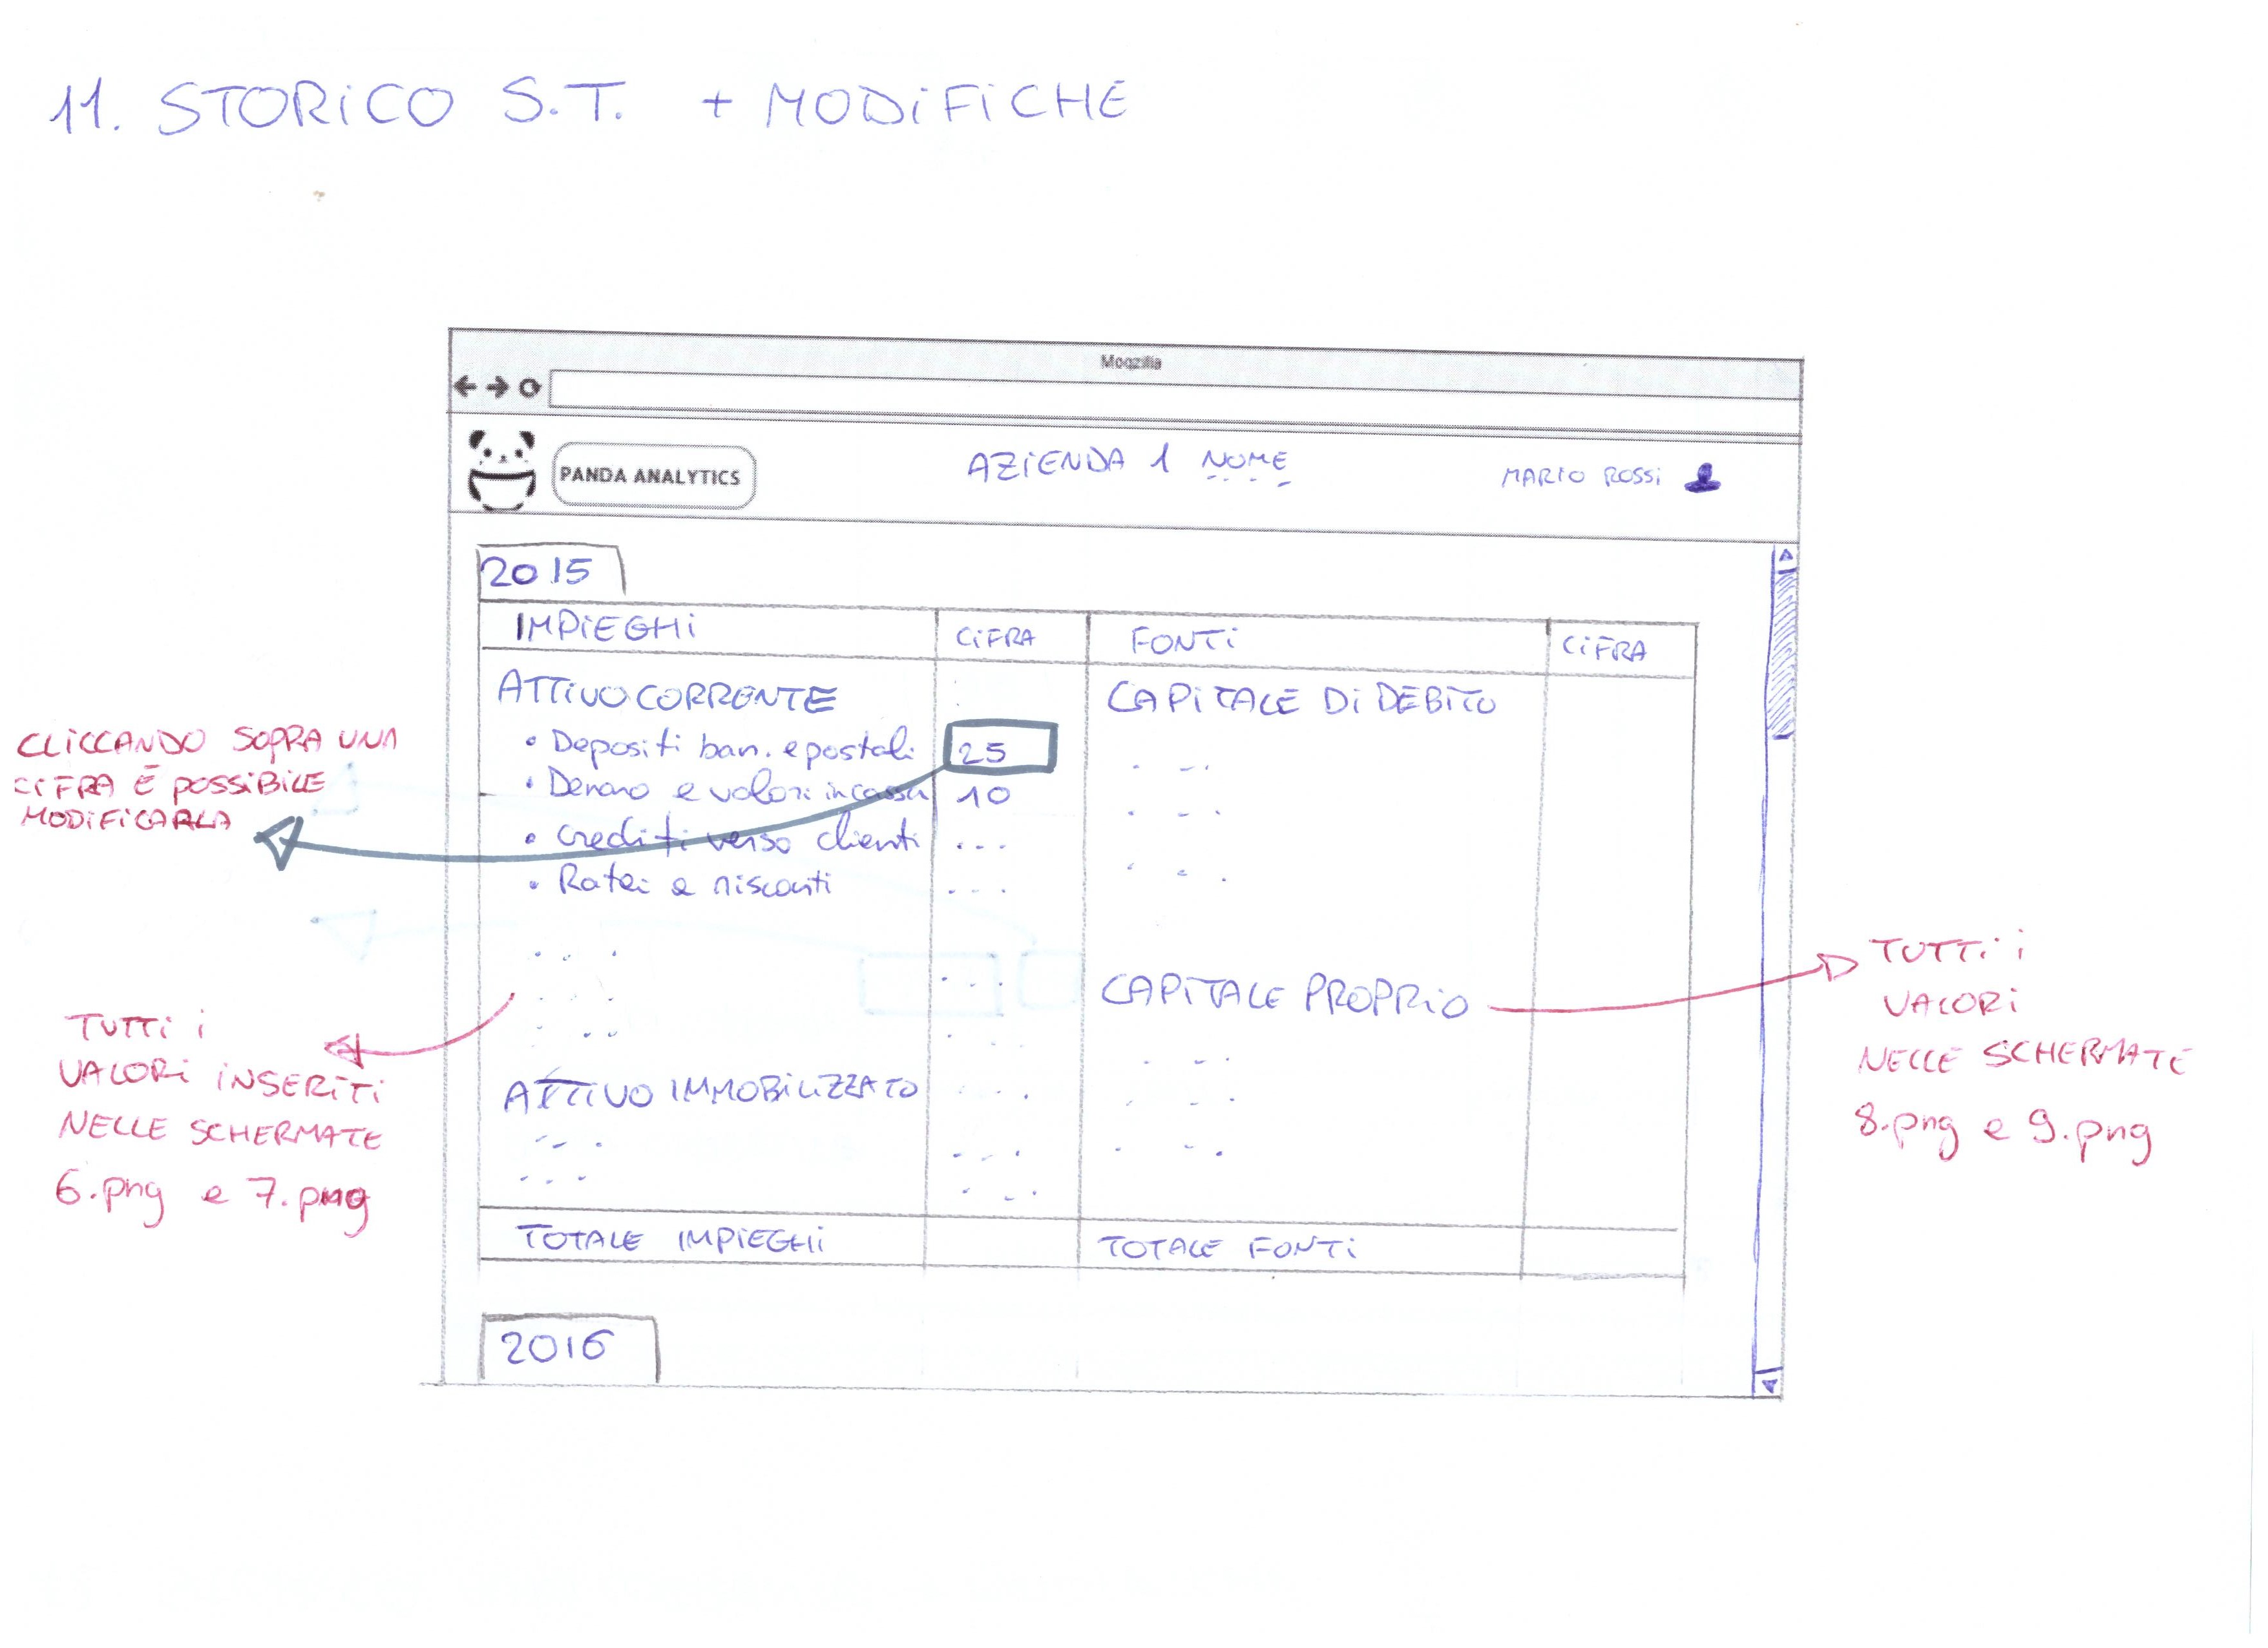 11. STORICO S.T. + MODIFICHE
Moqzilla
PANDA ANALYTICS
AZIENDA 1 NOME
MARIO ROSSI
2015
IMPIEGHI CIFRA FONTI CIFRA
ATTIVO CORRENTE CAPITALE DI DEBITO
• Depositi ban. e postali 25
• Denaro e valori in cassa 10
• Crediti verso clienti ...
• Ratei e risconti ...
CAPITALE PROPRIO
ATTIVO IMMOBILIZZATO
TOTALE IMPIEGHI TOTALE FONTI
2016
CLICCANDO SOPRA UNA
CIFRA È POSSIBILE
MODIFICARLA
TUTTI i
VALORI INSERITI
NELLE SCHERMATE
6.png e 7.png
TUTTI i
VALORI
NELLE SCHERMATE
8.png e 9.png